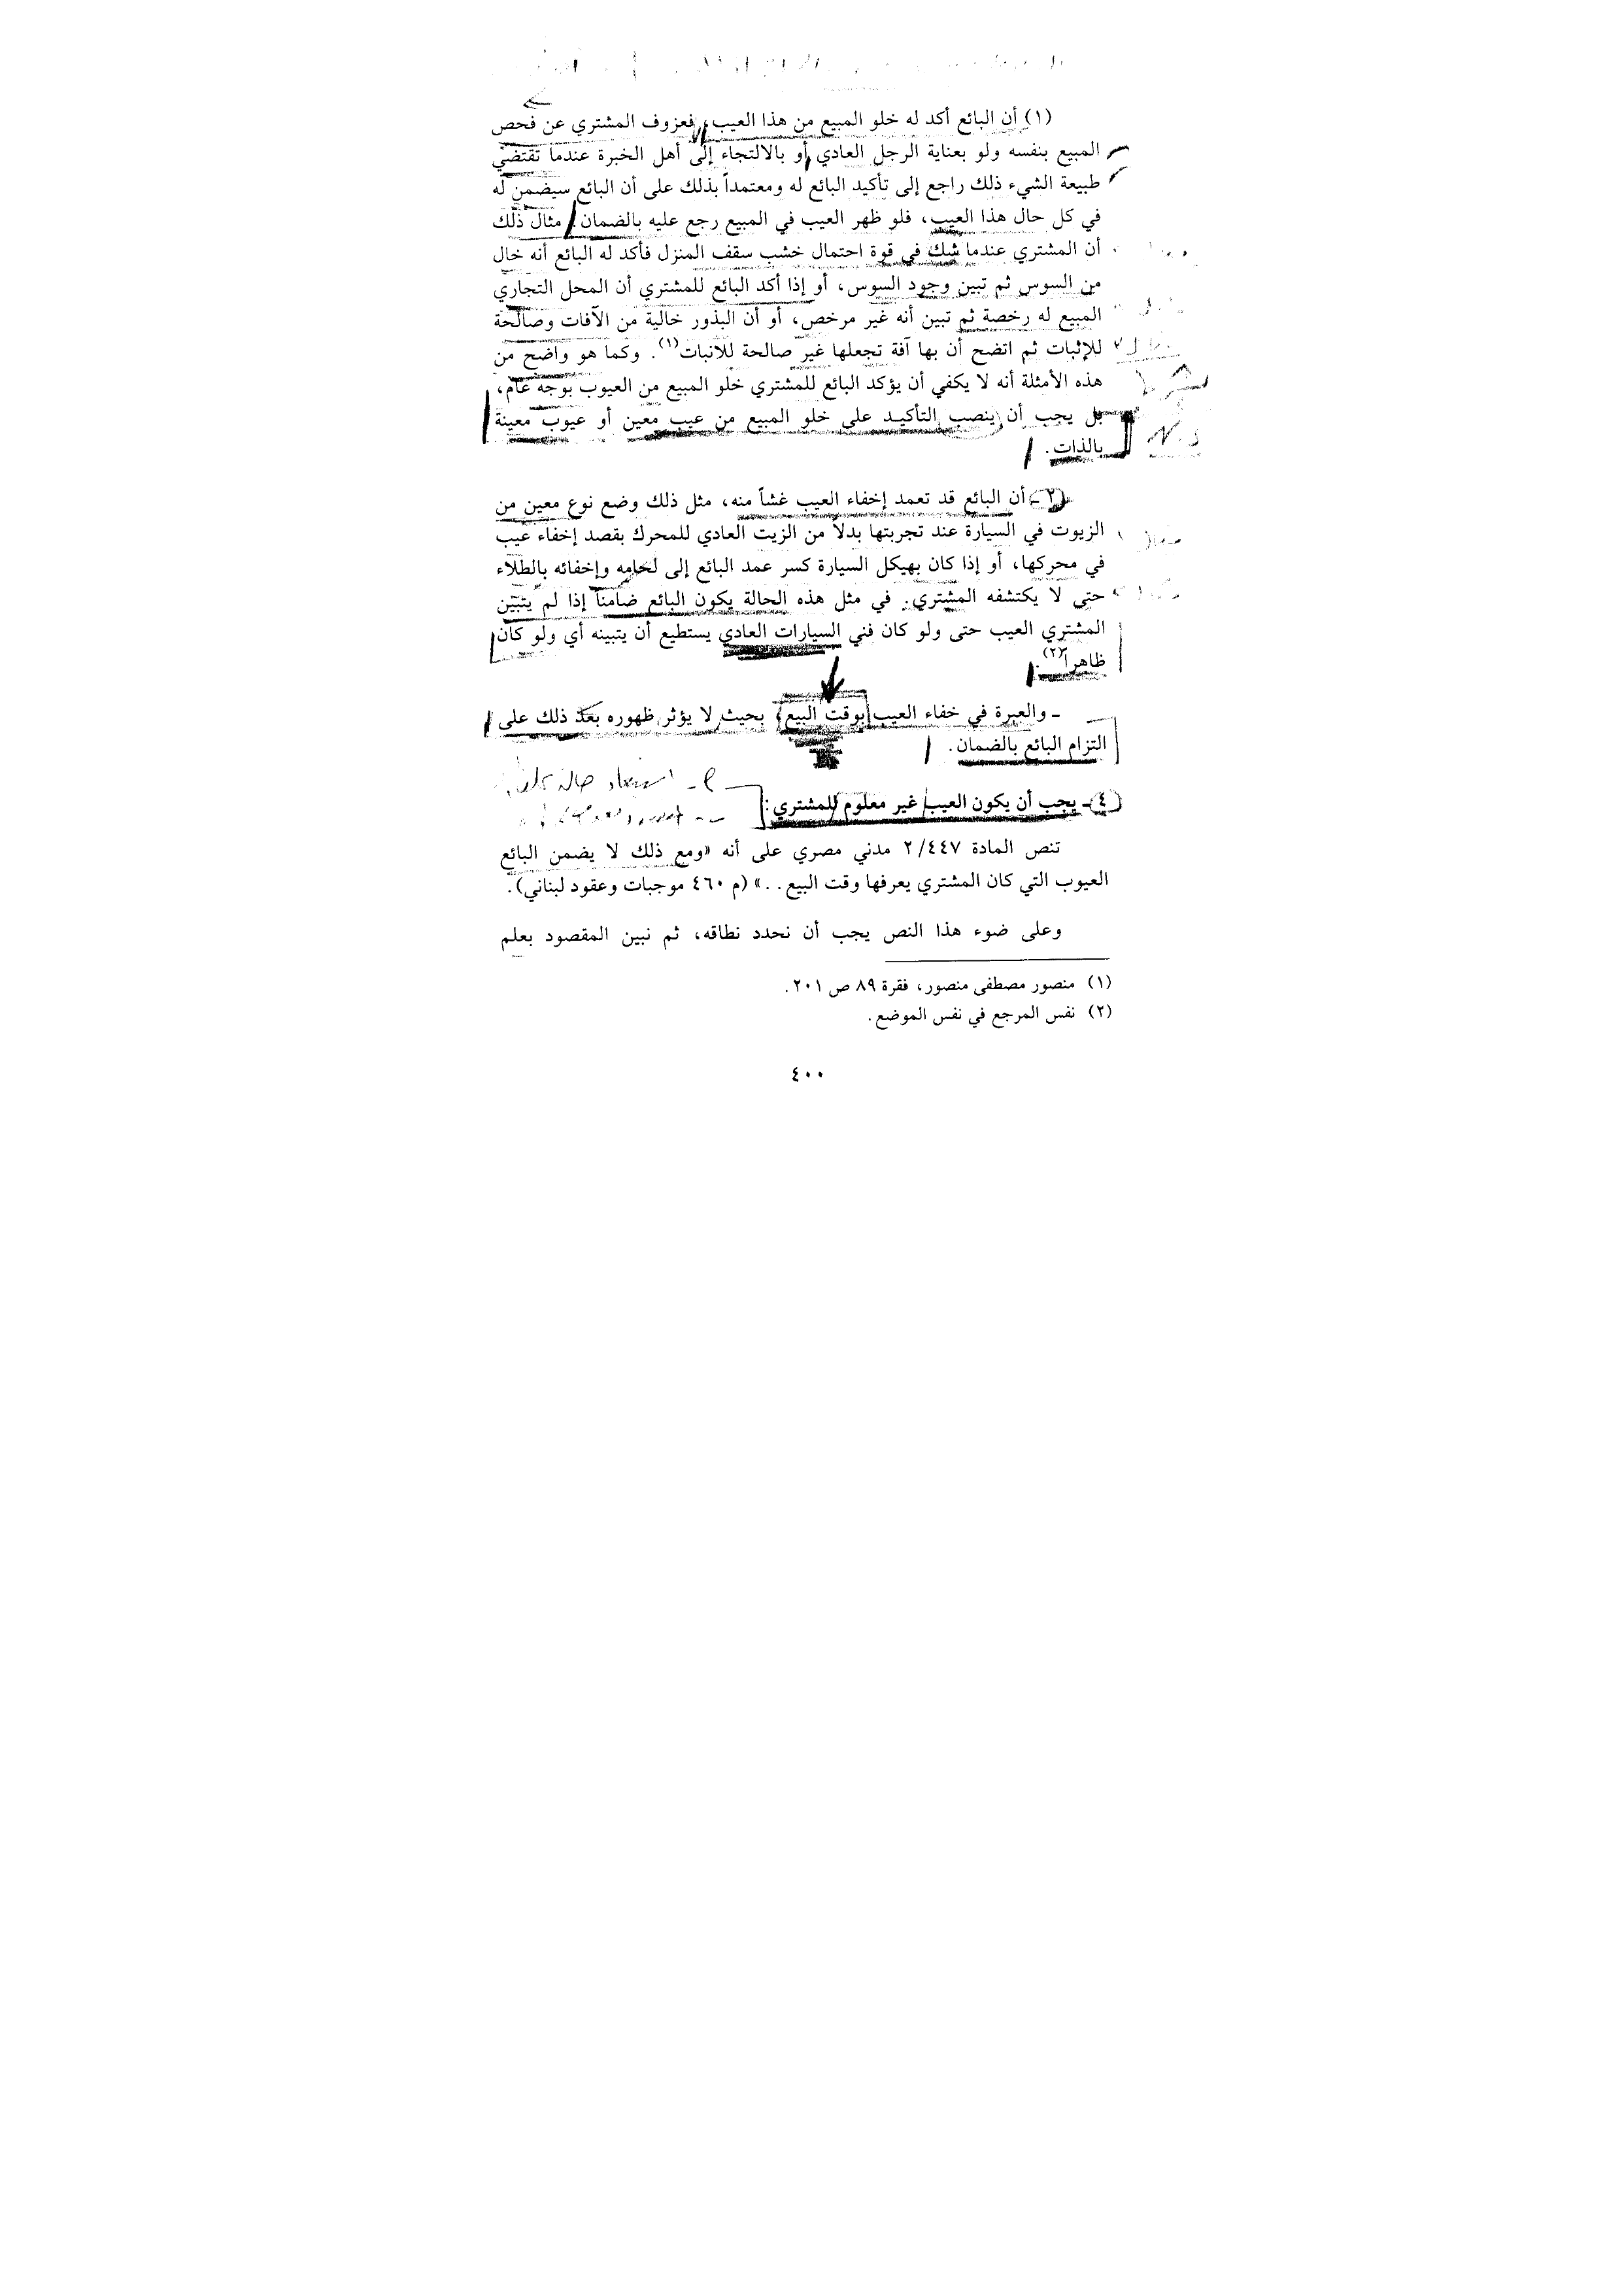 (١) أن البائع أكد له خلو المبيع من هذا العيب، فعزوف المشتري عن فحص
المبيع بنفسه ولو بعناية الرجل العادي أو بالالتجاء إلى أهل الخبرة عندما تقتضي
طبيعة الشيء ذلك راجع إلى تأكيد البائع له ومعتمداً بذلك على أن البائع سيضمن له
في كل حال هذا العيب، فلو ظهر العيب في المبيع رجع عليه بالضمان. مثال ذلك
أن المشتري عندما شك في قوة احتمال خشب سقف المنزل فأكد له البائع أنه خال
من السوس ثم تبين وجود السوس، أو إذا أكد البائع للمشتري أن المحل التجاري
المبيع له رخصة ثم تبين أنه غير مرخص، أو أن البذور خالية من الآفات وصالحة
للإثبات ثم اتضح أن بها آفة تجعلها غير صالحة للانبات(١). وكما هو واضح من
هذه الأمثلة أنه لا يكفي أن يؤكد البائع للمشتري خلو المبيع من العيوب بوجه عام،
بل يجب أن ينصب التأكيد على خلو المبيع من عيب معين أو عيوب معينة
بالذات.
٢ - أن البائع قد تعمد إخفاء العيب غشاً منه، مثل ذلك وضع نوع معين من
الزيوت في السيارة عند تجربتها بدلاً من الزيت العادي للمحرك بقصد إخفاء عيب
في محركها، أو إذا كان بهيكل السيارة كسر عمد البائع إلى لحامه وإخفائه بالطلاء
حتى لا يكتشفه المشتري. في مثل هذه الحالة يكون البائع ضامناً إذا لم يتبين
المشتري العيب حتى ولو كان فني السيارات العادي يستطيع أن يتبينه أي ولو كان
ظاهراً(٢).
- والعبرة في خفاء العيب بوقت البيع، بحيث لا يؤثر ظهوره بعد ذلك على
التزام البائع بالضمان.
٤ - يجب أن يكون العيب غير معلوم للمشتري:
تنص المادة ٢/٤٤٧ مدني مصري على أنه «ومع ذلك لا يضمن البائع
العيوب التي كان المشتري يعرفها وقت البيع..» (م ٤٦٠ موجبات وعقود لبناني).
وعلى ضوء هذا النص يجب أن نحدد نطاقه، ثم نبين المقصود بعلم
(١) منصور مصطفى منصور، فقرة ٨٩ ص ٢٠١.
(٢) نفس المرجع في نفس الموضع.
٤٠٠